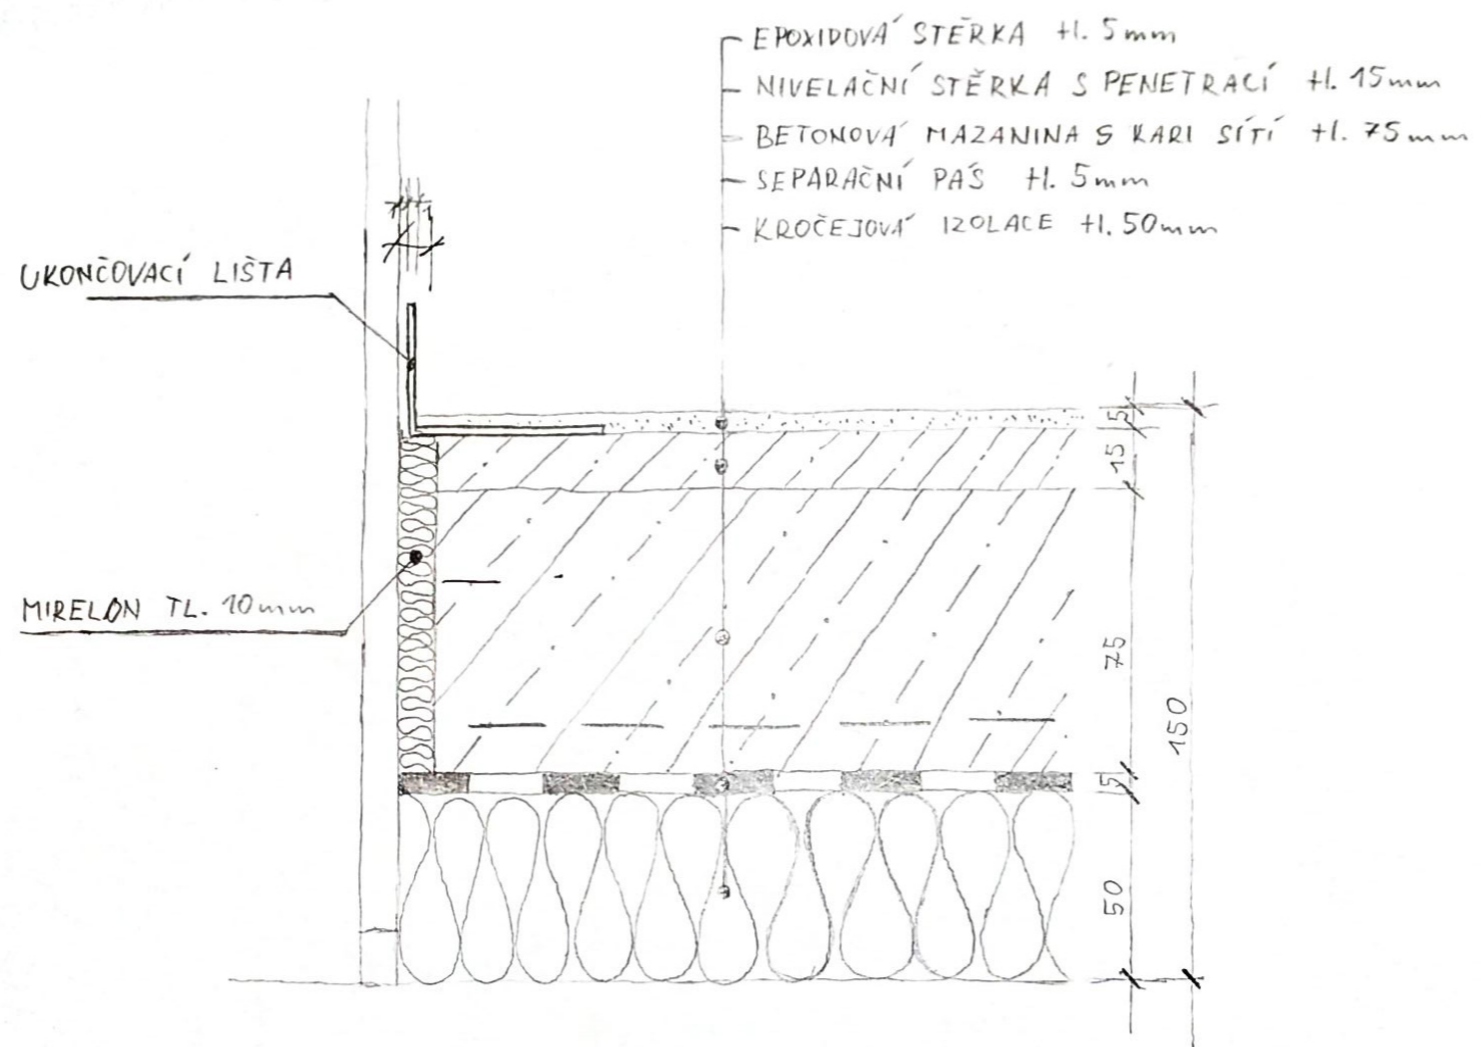 EPOXIDOVÁ STĚRKA tl. 5mm
NIVELAČNÍ STĚRKA S PENETRACÍ tl. 15mm
BETONOVÁ MAZANINA S KARI SÍTÍ tl. 75mm
SEPARAČNÍ PÁS tl. 5mm
KROČEJOVÁ IZOLACE tl. 50mm
UKONČOVACÍ LIŠTA
MIRELON TL. 10mm
5
15
75
150
5
50